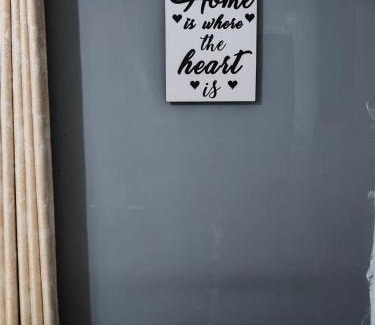 Home
is where
the
heart
is